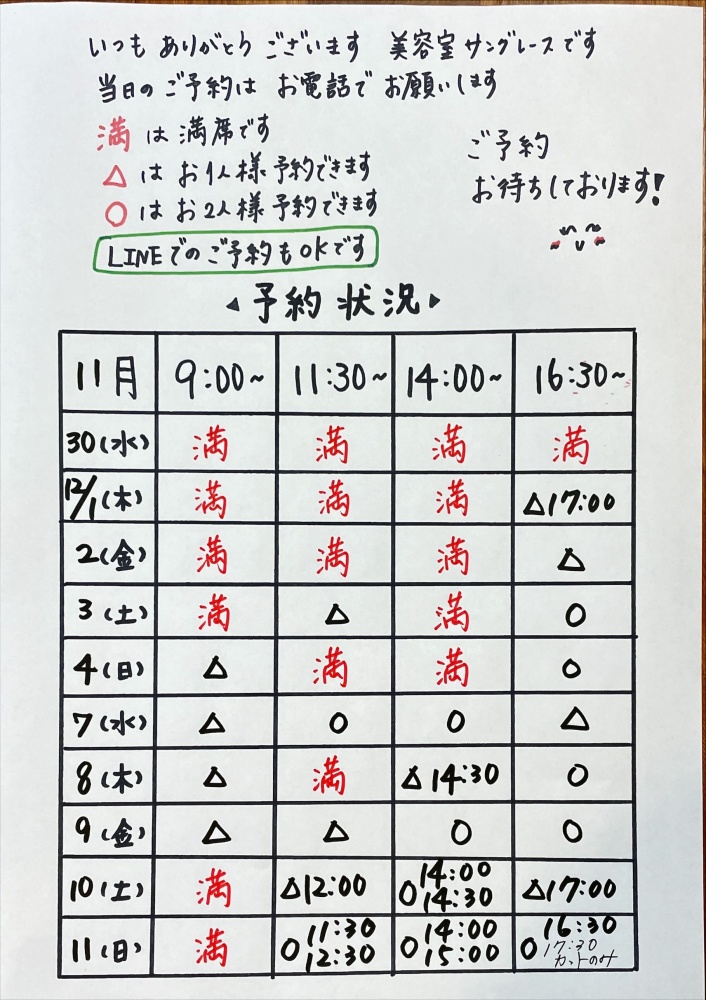 いつも ありがとう ございます 美容室 サングレースです
当日の ご予約は お電話で お願いします
満 は 満席です
△ は お1人様 予約できます
○ は お2人様 予約できます
ご予約
お待ちしております!
LINEでの ご予約も OKです
◀ 予約 状況 ▶
11月 9:00~ 11:30~ 14:00~ 16:30~
30(水) 満 満 満 満
12/1(木) 満 満 満 △17:00
2(金) 満 満 満 △
3(土) 満 △ 満 ○
4(日) △ 満 満 ○
7(水) △ ○ ○ △
8(木) △ 満 △14:30 ○
9(金) △ △ ○ ○
10(土) 満 △12:00 ○14:00 14:30 △17:00
11(日) 満 ○11:30 12:30 ○14:00 15:00 ○16:30 17:30 カットのみ